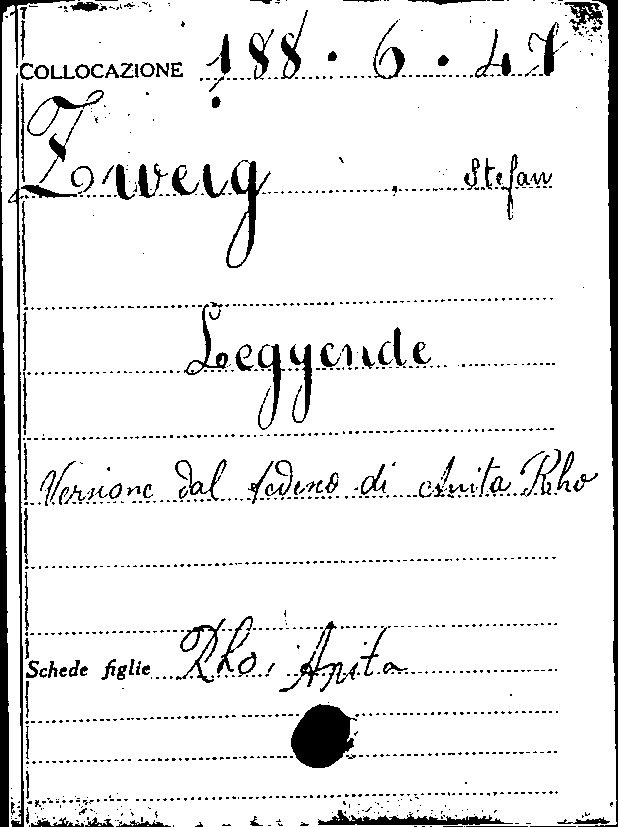 COLLOCAZIONE 188. 6. 47
Zweig, Stefan
Leggende
Versione dal tedesco di Anita Rho
Schede figlie Rho, Anita